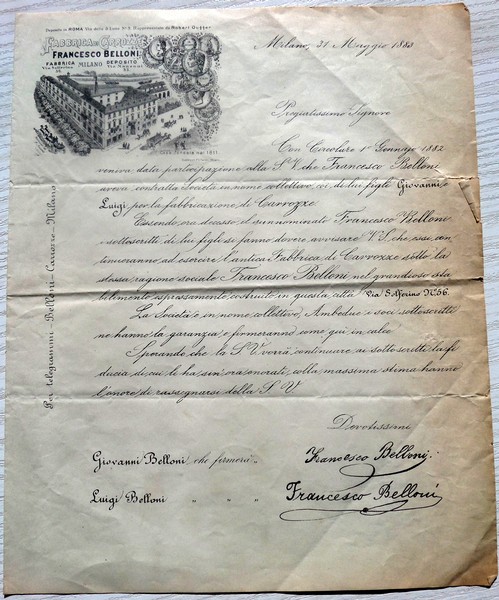 Deposito in ROMA Via delle
Rappresentato da Robert Oupfer
FABBRICA DI CARROZZE
FRANCESCO BELLONI
FABBRICA MILANO DEPOSITO
Milano, 31 Maggio 1883
Pregiatissimo Signore
Con Circolare 1º Gennajo 1882
veniva data partecipazione alla S.V. che Francesco Belloni
aveva contratta Società in nome collettivo coi di lui figli Giovanni e
Luigi per la fabbricazione di Carrozze.
Essendo ora decesso il sunnominato Francesco Belloni
i sottoscritti di lui figli si fanno dovere avvisare V.S. che essi con
tinueranno ad esercire l'antica Fabbrica di Carrozze sotto la
stessa ragione sociale Francesco Belloni nel grandioso sta
bilimento espressamente costruito in questa città Via Solferino Nº 56.
La Società è in nome collettivo. Ambedue i soci sottoscritti
ne hanno la garanzia e firmeranno come qui in calce.
Sperando che la S.V. vorrà continuare ai sottoscritti la fi
ducia di cui li ha sin'ora onorati, colla massima stima hanno
l'onore di rassegnarsi della S. V.
Devotissimi
Giovanni Belloni che firmerà „ Francesco Belloni
Luigi Belloni „ „ „ Francesco Belloni
Per telegrammi - Belloni - Carrozze - Milano